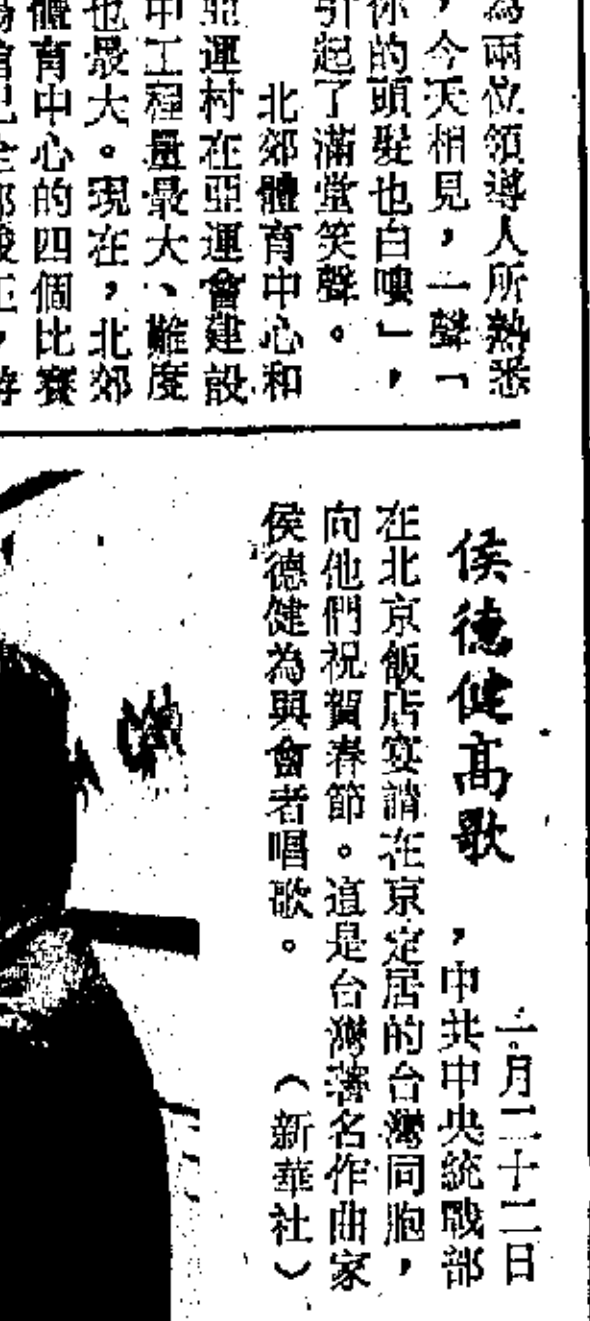 為兩位領導人所熟悉
，今天相見，一聲「
你的頭髮也白嘍」，
引起了滿堂笑聲。
北郊體育中心和
亞運村在亞運會建設
中工程量最大、難度
也最大。現在，北郊
體育中心的四個比賽
侯德健高歌
一月二十二日
，中共中央統戰部
在北京飯店宴請在京定居的台灣同胞，
向他們祝賀春節。這是台灣著名作曲家
侯德健為與會者唱歌。（新華社）